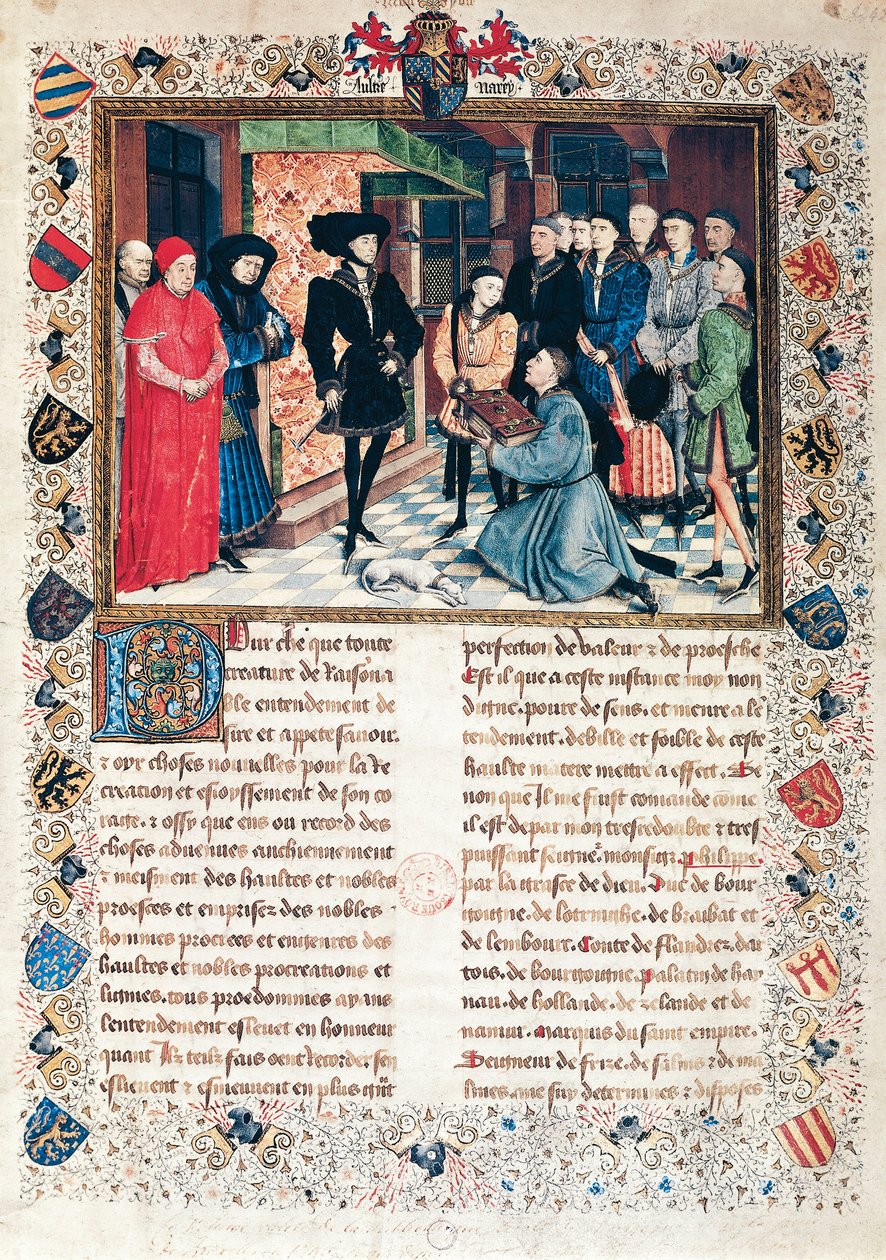 Aultre Narey
Pour che que toute
creature de Raisona
ble entendement de
sire et appete sauoir
⁊ oyr choses nouuelles pour la Re
creation et esioyssement de son co
rage. ⁊ ossy que ens ou record des
choses aduenues anchiennement
⁊ meisment des haultes et nobles
proesces et emprises des nobles
hommes procrees et engenres des
haultes et nobles procreations et
lignies. tous proedommes ayans
lentendement esleuet en honneur
quant Ilz telz fais oent Recorder sen
esljeuent ⁊ esmeuuent en plus
perfection de valeur ⁊ de proesche
Est il que a ceste instance moy non
digne. poure de sens. et menre
tendement. debille et foible de ceste
haulte matere mettre a effect. Se
non que Il me fust comande come
il est de par mon tresredoubte ⁊ tres
puissant seigneur monsigr philippe.
par la grasce de dieu. Duc de bour
gongne. de lotringhe. de brabat et
de lembourc. Conte de flandrez. dar
tois. de bourgongne. palatin de hay
nau. de hollande. de zelande et de
namur. Marquis du saint empire.
Seigneur de frize. de salins ⁊ de ma
lines. me suy determines ⁊ disposes